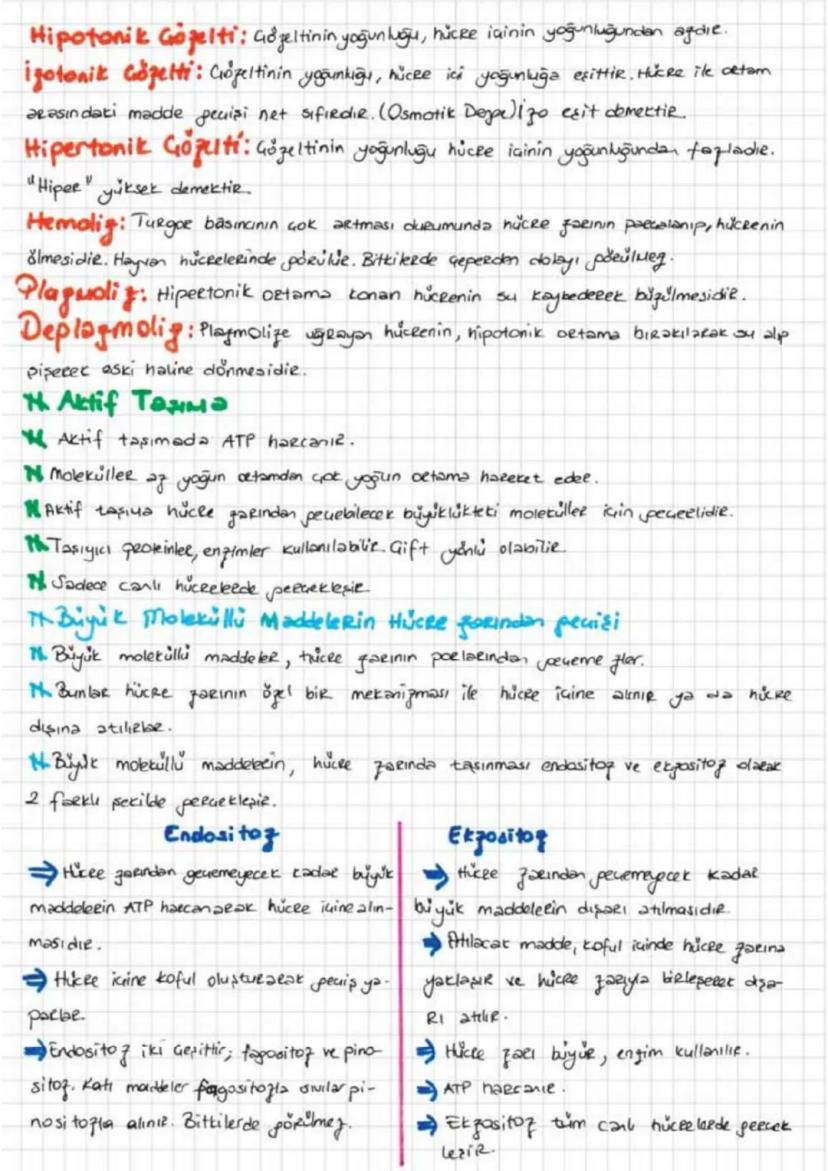 Hipotonik Çözelti: Çözeltinin yoğunluğu, hücre içinin yoğunluğundan azdır.
İzotonik Çözelti: Çözeltinin yoğunluğu, hücre içi yoğunluğa eşittir. Hücre ile ortam
arasındaki madde geçişi net sıfırdır. (Osmotik Denge) İzo eşit demektir.
Hipertonik Çözelti: Çözeltinin yoğunluğu hücre içinin yoğunluğundan fazladır.
"Hiper" yüksek demektir.
Hemoliz: Turgor basıncının çok artması durumunda hücre zarının parçalanıp, hücrenin
ölmesidir. Hayvan hücrelerinde görülür. Bitkilerde çeperden dolayı görülmez.
Plazmoliz: Hipertonik ortama konan hücrenin su kaybederek büzülmesidir.
Deplazmoliz: Plazmolize uğrayan hücrenin, hipotonik ortama bırakılarak su alıp
şişerek eski haline dönmesidir.
Aktif Taşıma
Aktif taşımada ATP harcanır.
Moleküller az yoğun ortamdan çok yoğun ortama hareket eder.
Aktif taşıma hücre zarından geçebilecek büyüklükteki moleküller için geçerlidir.
Taşıyıcı proteinler, enzimler kullanılabilir. Çift yönlü olabilir.
Sadece canlı hücrelerde gerçekleşir
Büyük Moleküllü Maddelerin Hücre Zarından geçişi
Büyük moleküllü maddeler, hücre zarının porlarından geçemezler.
Bunlar hücre zarının özel bir mekanizması ile hücre içine alınır ya da hücre
dışına atılırlar.
Büyük moleküllü maddelerin, hücre zarında taşınması endositoz ve ekzositoz olarak
2 farklı şekilde gerçekleşir.
Endositoz
Hücre zarından geçemeyecek kadar büyük
maddelerin ATP harcanarak hücre içine alın-
masıdır.
Hücre içine koful oluşturarak geçiş ya-
parlar.
Endositoz iki çeşittir; fagositoz ve pino-
sitoz. Katı maddeler fagositozla sıvılar pi-
nositozla alınır. Bitkilerde görülmez.
Ekzositoz
Hücre zarından geçemeyecek kadar
büyük maddelerin dışarı atılmasıdır.
Atılacak madde, koful içinde hücre zarına
yaklaşır ve hücre zarıyla birleşerek dışa-
rı atılır.
Hücre zarı büyür, enzim kullanılır.
ATP harcanır.
Ekzositoz tüm canlı hücrelerde gerçek
leşir.